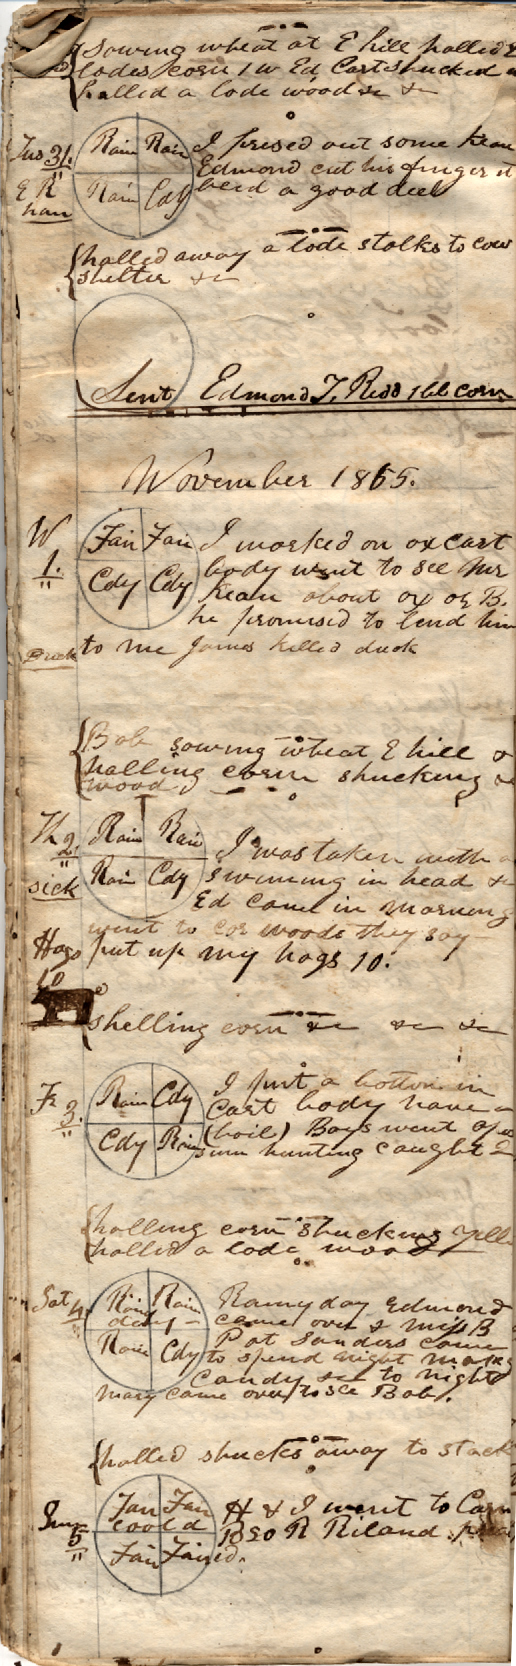 sowing wheat at E hill halled 2
lodes corn 1 w Ed Cart shucked
halled a lode wood &c &c
Tus 31. Rain Rain I prised out some
Edmond cut his finger it
E R Rain Cdy bled a good deel
han
halled away a lode stalks to cow
shelter &c
Sent Edmond T. Redd 1 bb corn
November 1865.
W Fair Fair I worked on ox cart
1. Cdy Cdy body went to see Mr
Kean about ox of B.
he promised to lend him
Duck to me James killed duck
Bob sowing wheat E hill &
halling corn shucking &c
wood
Th 2. Rain Rain I was taken with a
sick Rain Cdy swimming in head &c
Ed came in morning
went to woods they say
Hogs put up my hogs 10.
10
shelling corn &c &c &c
Fr 3. Rain Cdy I put a bottom in
Cart body have a
Cdy Rain (boil) Boys went
hunting caught 2
halling corn shucking
halled a lode wood
Sat 4. Rain Rain Rainy day Edmond
day came over & Miss B
Rain Cdy Pat Sanders came
to spend night make
Candy &c to night
Mary came over to see Bob.
halled shucks away to stack
Sun 5 Fair Fair H & I went to
coold Bro R Riland
Fair Fair ed.